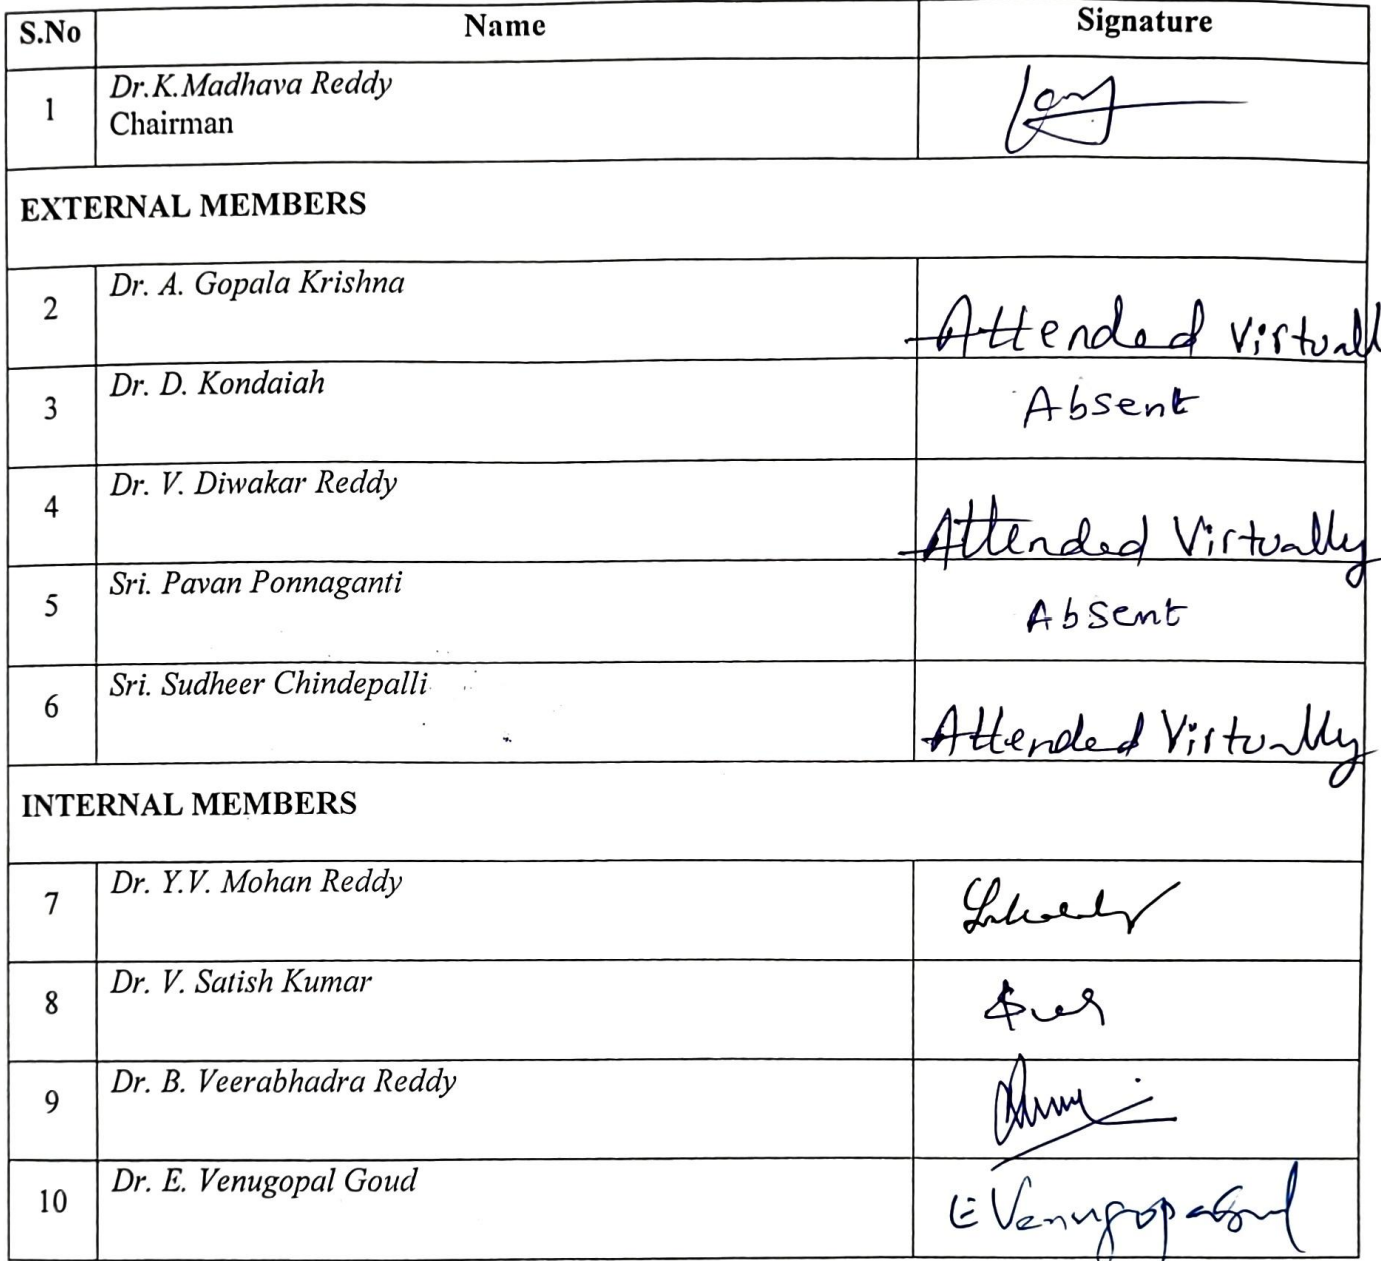 S.No Name Signature
1 Dr.K.Madhava Reddy
Chairman
EXTERNAL MEMBERS
2 Dr. A. Gopala Krishna Attended Virtuall
3 Dr. D. Kondaiah Absent
4 Dr. V. Diwakar Reddy Attended Virtually
5 Sri. Pavan Ponnaganti Absent
6 Sri. Sudheer Chindepalli Attended Virtually
INTERNAL MEMBERS
7 Dr. Y.V. Mohan Reddy
8 Dr. V. Satish Kumar
9 Dr. B. Veerabhadra Reddy
10 Dr. E. Venugopal Goud E Venugopal Goud